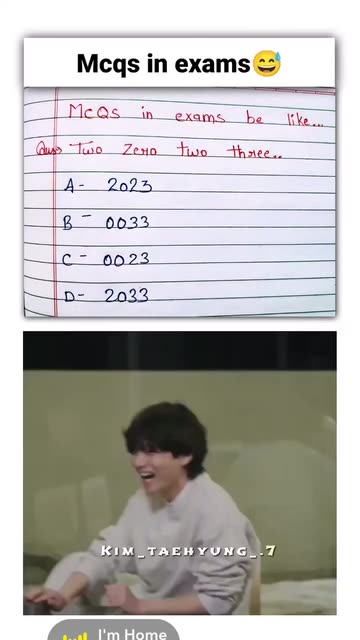 Mcqs in exams😅
MCQS in exams be like...
Ques Two Zero two three..
A- 2023
B- 0033
C- 0023
D- 2033
KIM_TAEHYUNG_.7
I'm Home